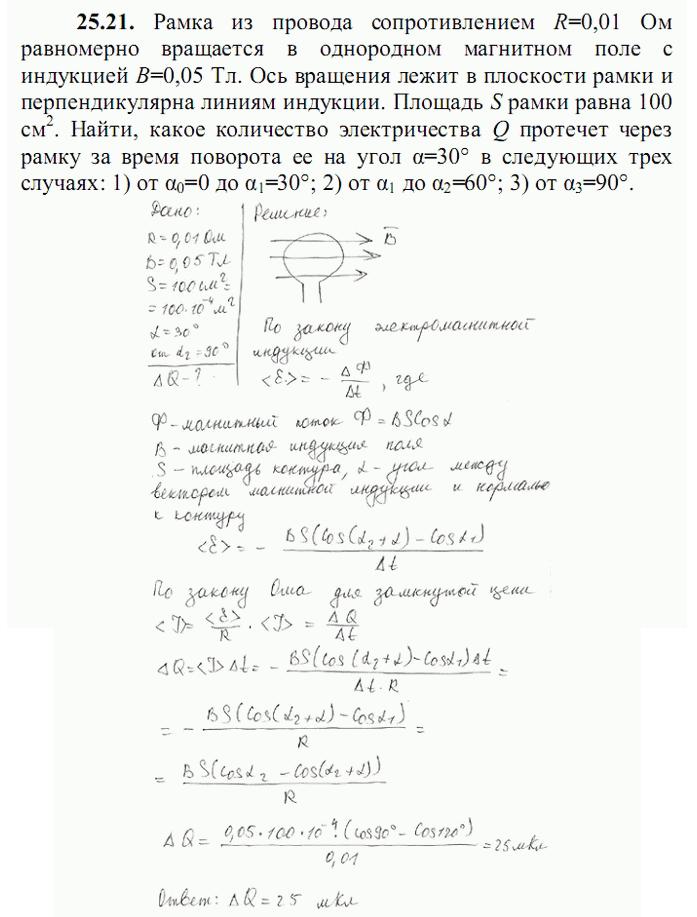 25.21. Рамка из провода сопротивлением R=0,01 Ом
равномерно вращается в однородном магнитном поле с
индукцией B=0,05 Тл. Ось вращения лежит в плоскости рамки и
перпендикулярна линиям индукции. Площадь S рамки равна 100
см². Найти, какое количество электричества Q протечет через
рамку за время поворота ее на угол α=30° в следующих трех
случаях: 1) от α₀=0 до α₁=30°; 2) от α₁ до α₂=60°; 3) от α₃=90°.
Дано:
R=0,01 Ом
B=0,05 Тл
S=100 см²=
=100·10⁻⁴ м²
α=30°
от α₂=90°
ΔQ-?
Решение:
B
По закону электромагнитной
индукции
<ℰ>= - ΔФ/Δt, где
Ф-магнитный поток Ф=BScosα
B - магнитная индукция поля
S - площадь контура, α - угол между
вектором магнитной индукции и нормалью
к контуру
<ℰ>= - BS(cos(α₂+α)-cosα₁)/Δt
По закону Ома для замкнутой цепи
<I>= <ℰ>/R · <I> = ΔQ/Δt
ΔQ=<I>Δt= - BS(cos(α₂+α)-cosα₁)Δt/Δt·R =
= - BS(cos(α₂+α)-cosα₁)/R =
= BS(cosα₂-cos(α₂+α))/R
ΔQ= 0,05·100·10⁻⁴(cos90°-cos120°)/0,01 =25 мкл
Ответ: ΔQ=25 мкл